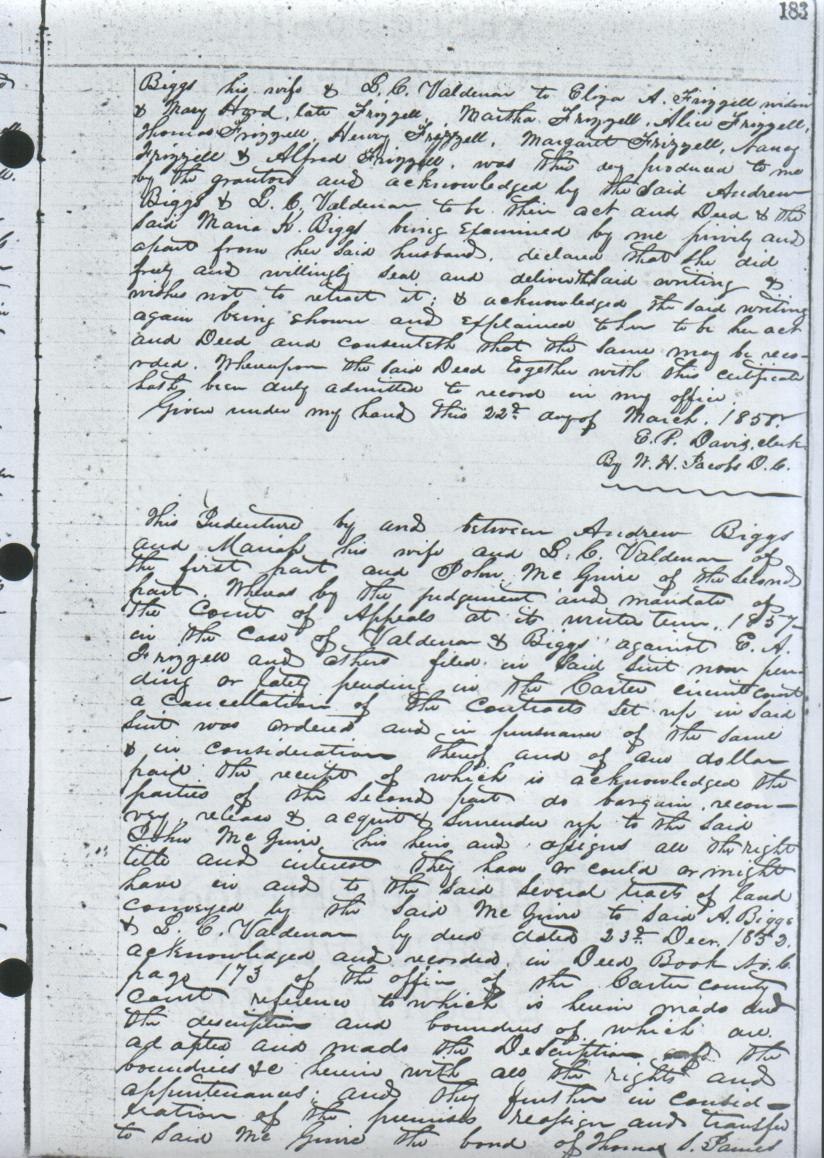 183
Biggs his wife & L. C. Valdenar to Eliza A. Frizzell widow
& Mary Hord, late Frizzell, Martha Frizzell, Alice Frizzell,
Thomas Frizzell, Henry Frizzell, Margaret Frizzell, Nancy
Frizzell & Alfred Frizzell, was this day produced to me
by the grantors and acknowledged by the said Andrew
Biggs & L. C. Valdenar to be their act and Deed & the
said Maria H. Biggs being examined by me privily and
apart from her said husband, declared that she did
freely and willingly seal and deliver the said writing &
wishes not to retract it; & acknowledged the said writing
again being shown and explained to her to be her act
and Deed and consenteth that the same may be reco-
rded. Whereupon the said Deed together with this certificate
hath been duly admitted to record in my office.
Given under my hand this 22d day of March, 1858.
E. P. Davis, clerk
By W. H. Jacobs D. C.
This Indenture by and between Andrew Biggs
and Mariah his wife and L. C. Valdenar of
the first part and John McGuire of the second
part. Whereas by the judgement and mandate of
the Court of Appeals at its winter term, 1857
in the Case of Valdenar & Biggs against E. A.
Frizzell and others filed in said suit now pen
ding or lately pending in the Carter circuit court
a Cancellation of the Contracts set up in said
suit was ordered and in pursuance of the same
& in consideration thereof and of one dollar
paid the receipt of which is acknowledged the
parties of the second part do bargain, recon-
vey, release & acquit & surrender up to the said
John McGuire his heirs and assigns all the right
title and interest they have or could or might
have in and to the said several tracts of land
conveyed by the said McGuire to said A. Biggs
& L. C. Valdenar by deed dated 23d Decr. 1852,
acknowledged and recorded in Deed Book No. C.
page 173 of the office of the Carter county
court reference to which is herein made and
the description and boundries of which are
adopted and made the Description and the
boundries &c herein with all the rights and
appurtenances; and they further in consid-
eration of the premises reassign and transfer
to said McGuire the bond of Thomas S.